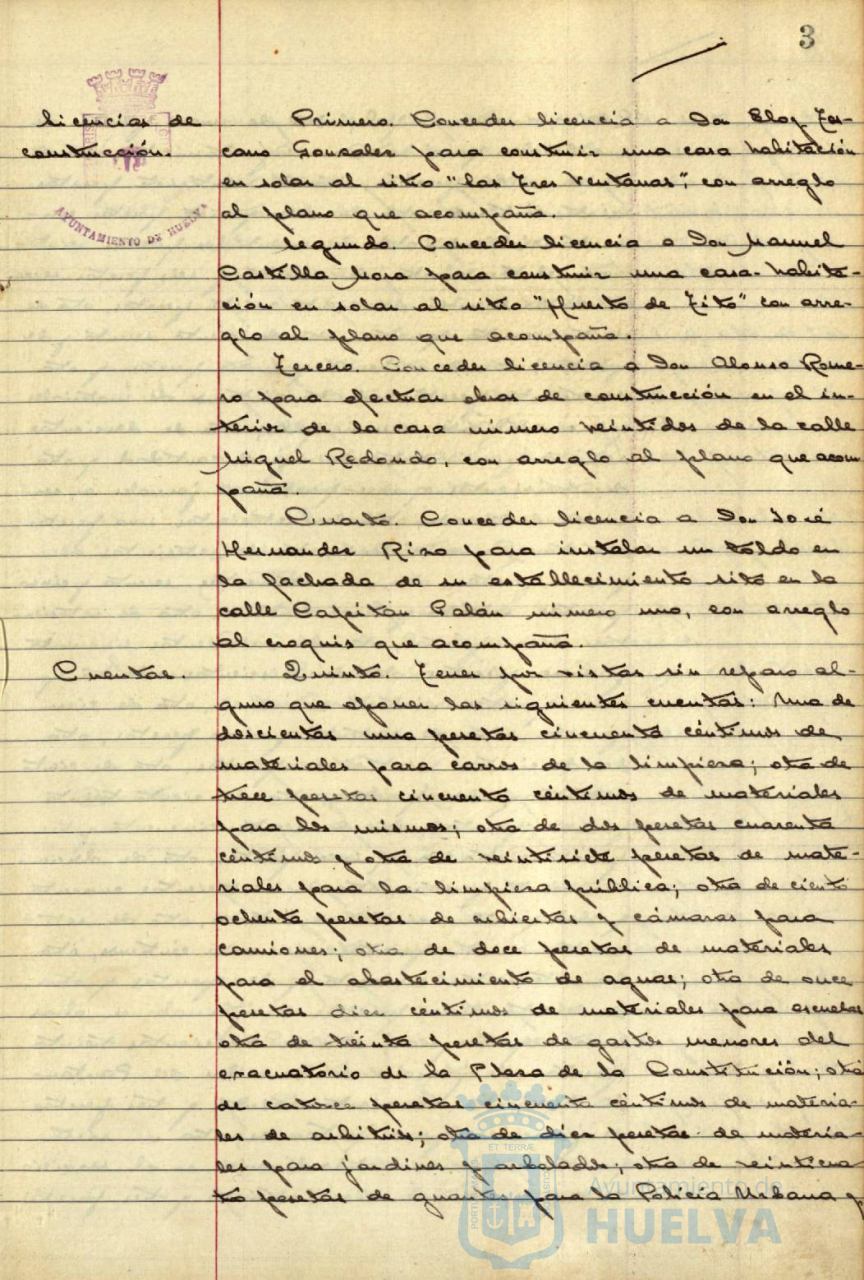 3
Licencias de
construcción.
Primero. Conceder licencia a Don Eloy Tos-
cano Gonzalez para construir una casa habitación
en solar al sitio "Las Tres Ventanas", con arreglo
al plano que acompaña.
Segundo. Conceder licencia a Don Manuel
Castilla Mora para construir una casa-habita-
ción en solar al sitio "Huerto de Tito" con arre-
glo al plano que acompaña.
Tercero. Conceder licencia a Don Alonso Rome-
ro para efectuar obras de construcción en el in-
terior de la casa número veintidos de la calle
Miguel Redondo, con arreglo al plano que acom
paña.
Cuarto. Conceder licencia a Don José
Hernandez Rizo para instalar un toldo en
la fachada de su establecimiento sito en la
calle Capitán Galán número uno, con arreglo
al croquis que acompaña.
Cuentas.
Quinto. Tener por vistas sin reparo al-
guno que oponer las siguientes cuentas: Una de
doscientas una pesetas cincuenta céntimos de
materiales para carros de la limpieza; otra de
trece pesetas cincuenta céntimos de materiales
para los mismos; otra de dos pesetas cuarenta
céntimos y otra de veintisiete pesetas de mate-
riales para la limpieza pública; otra de ciento
ochenta pesetas de cubiertas y cámaras para
camiones; otra de doce pesetas de materiales
para el abastecimiento de aguas; otra de once
pesetas diez céntimos de materiales para escuelas
otra de treinta pesetas de gastos menores del
evacuatorio de la Plaza de la Constitución; otra
de catorce pesetas cincuenta céntimos de materia-
les de arbitrios; otra de diez pesetas de materia-
les para jardines y arbolados; otra de veinticua-
tro pesetas de guantes para la Policia Urbana y
AYUNTAMIENTO DE HUELVA
Ayuntamiento de
HUELVA